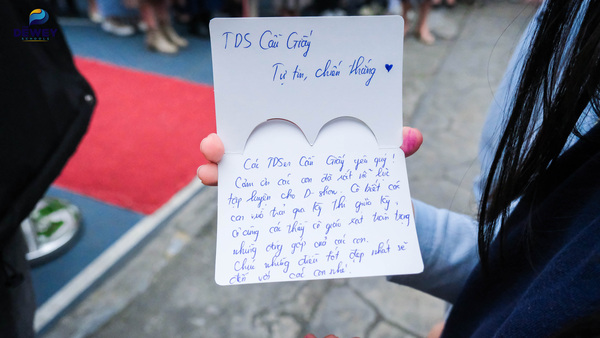 DEWEY
SCHOOLS
TDS Cầu Giấy
Tự tin, chiến thắng ♥
Các TDSers Cầu Giấy yêu quý!
Cảm ơn các con đã rất nỗ lực
tập luyện cho D-show. Cô biết các
con vừa trải qua kỳ thi giữa kỳ,
cô cùng các thầy cô giáo rất trân trọng
những đóng góp của các con.
Chúc những điều tốt đẹp nhất sẽ
đến với các con nhé!